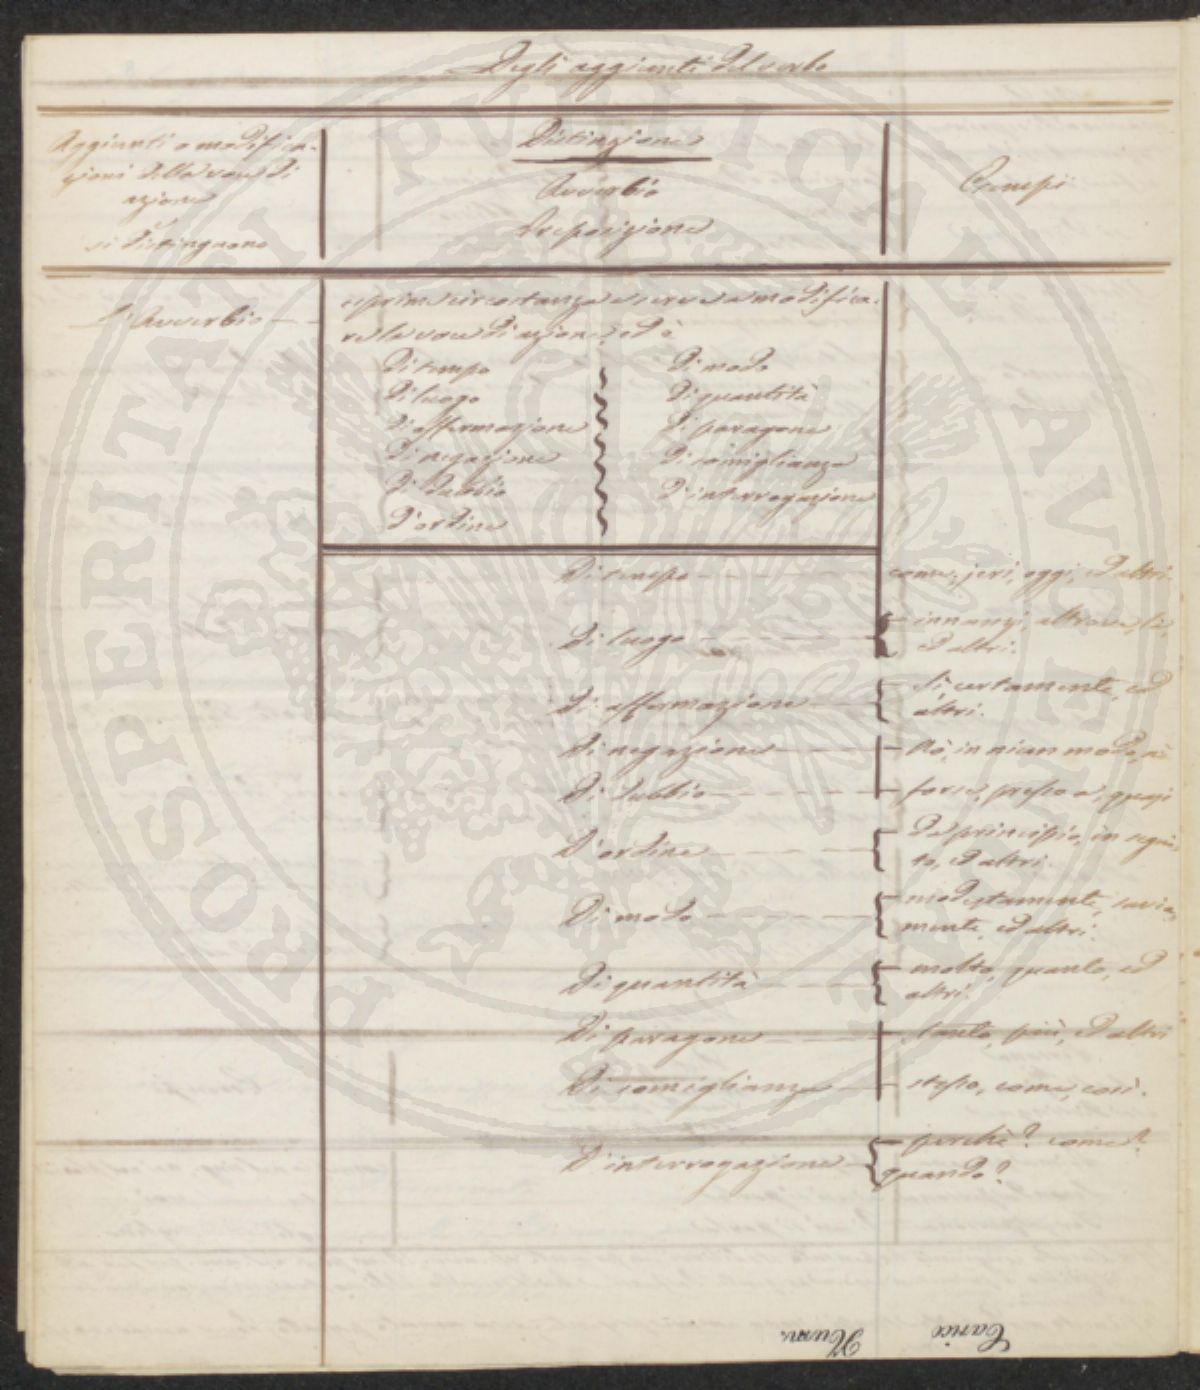 Degli aggiunti del verbo
Aggiunti o modifica-
zioni della voce di
azione
si distinguono
Distinzione
Avverbio
Preposizione
Esempi
L'Avverbio
esprime circostanza e serve a modifica-
re la voce di azione, ed è
Di tempo
Di luogo
Di affermazione
Di negazione
Di dubbio
D'ordine
Di modo
Di quantità
Di paragone
Di somiglianza
D'interrogazione
Di tempo come, jeri, oggi, ed altri.
Di luogo innanzi, altrove, là,
ed altri.
Di affermazione Sì, certamente, ed
altri.
Di negazione Nò, in niun modo, nè
Di dubbio forse, presso a, quasi
D'ordine Da principio, in segui-
to, ed altri.
Di modo modestamente, savia-
mente, ed altri.
Di quantità molto, quanto, ed
altri.
Di paragone tanto, più, ed altri
Di somiglianza stesso, come, così.
D'interrogazione perchè? come?
quando?
Num.
Carico
PROSPERITATI PUBLICAE